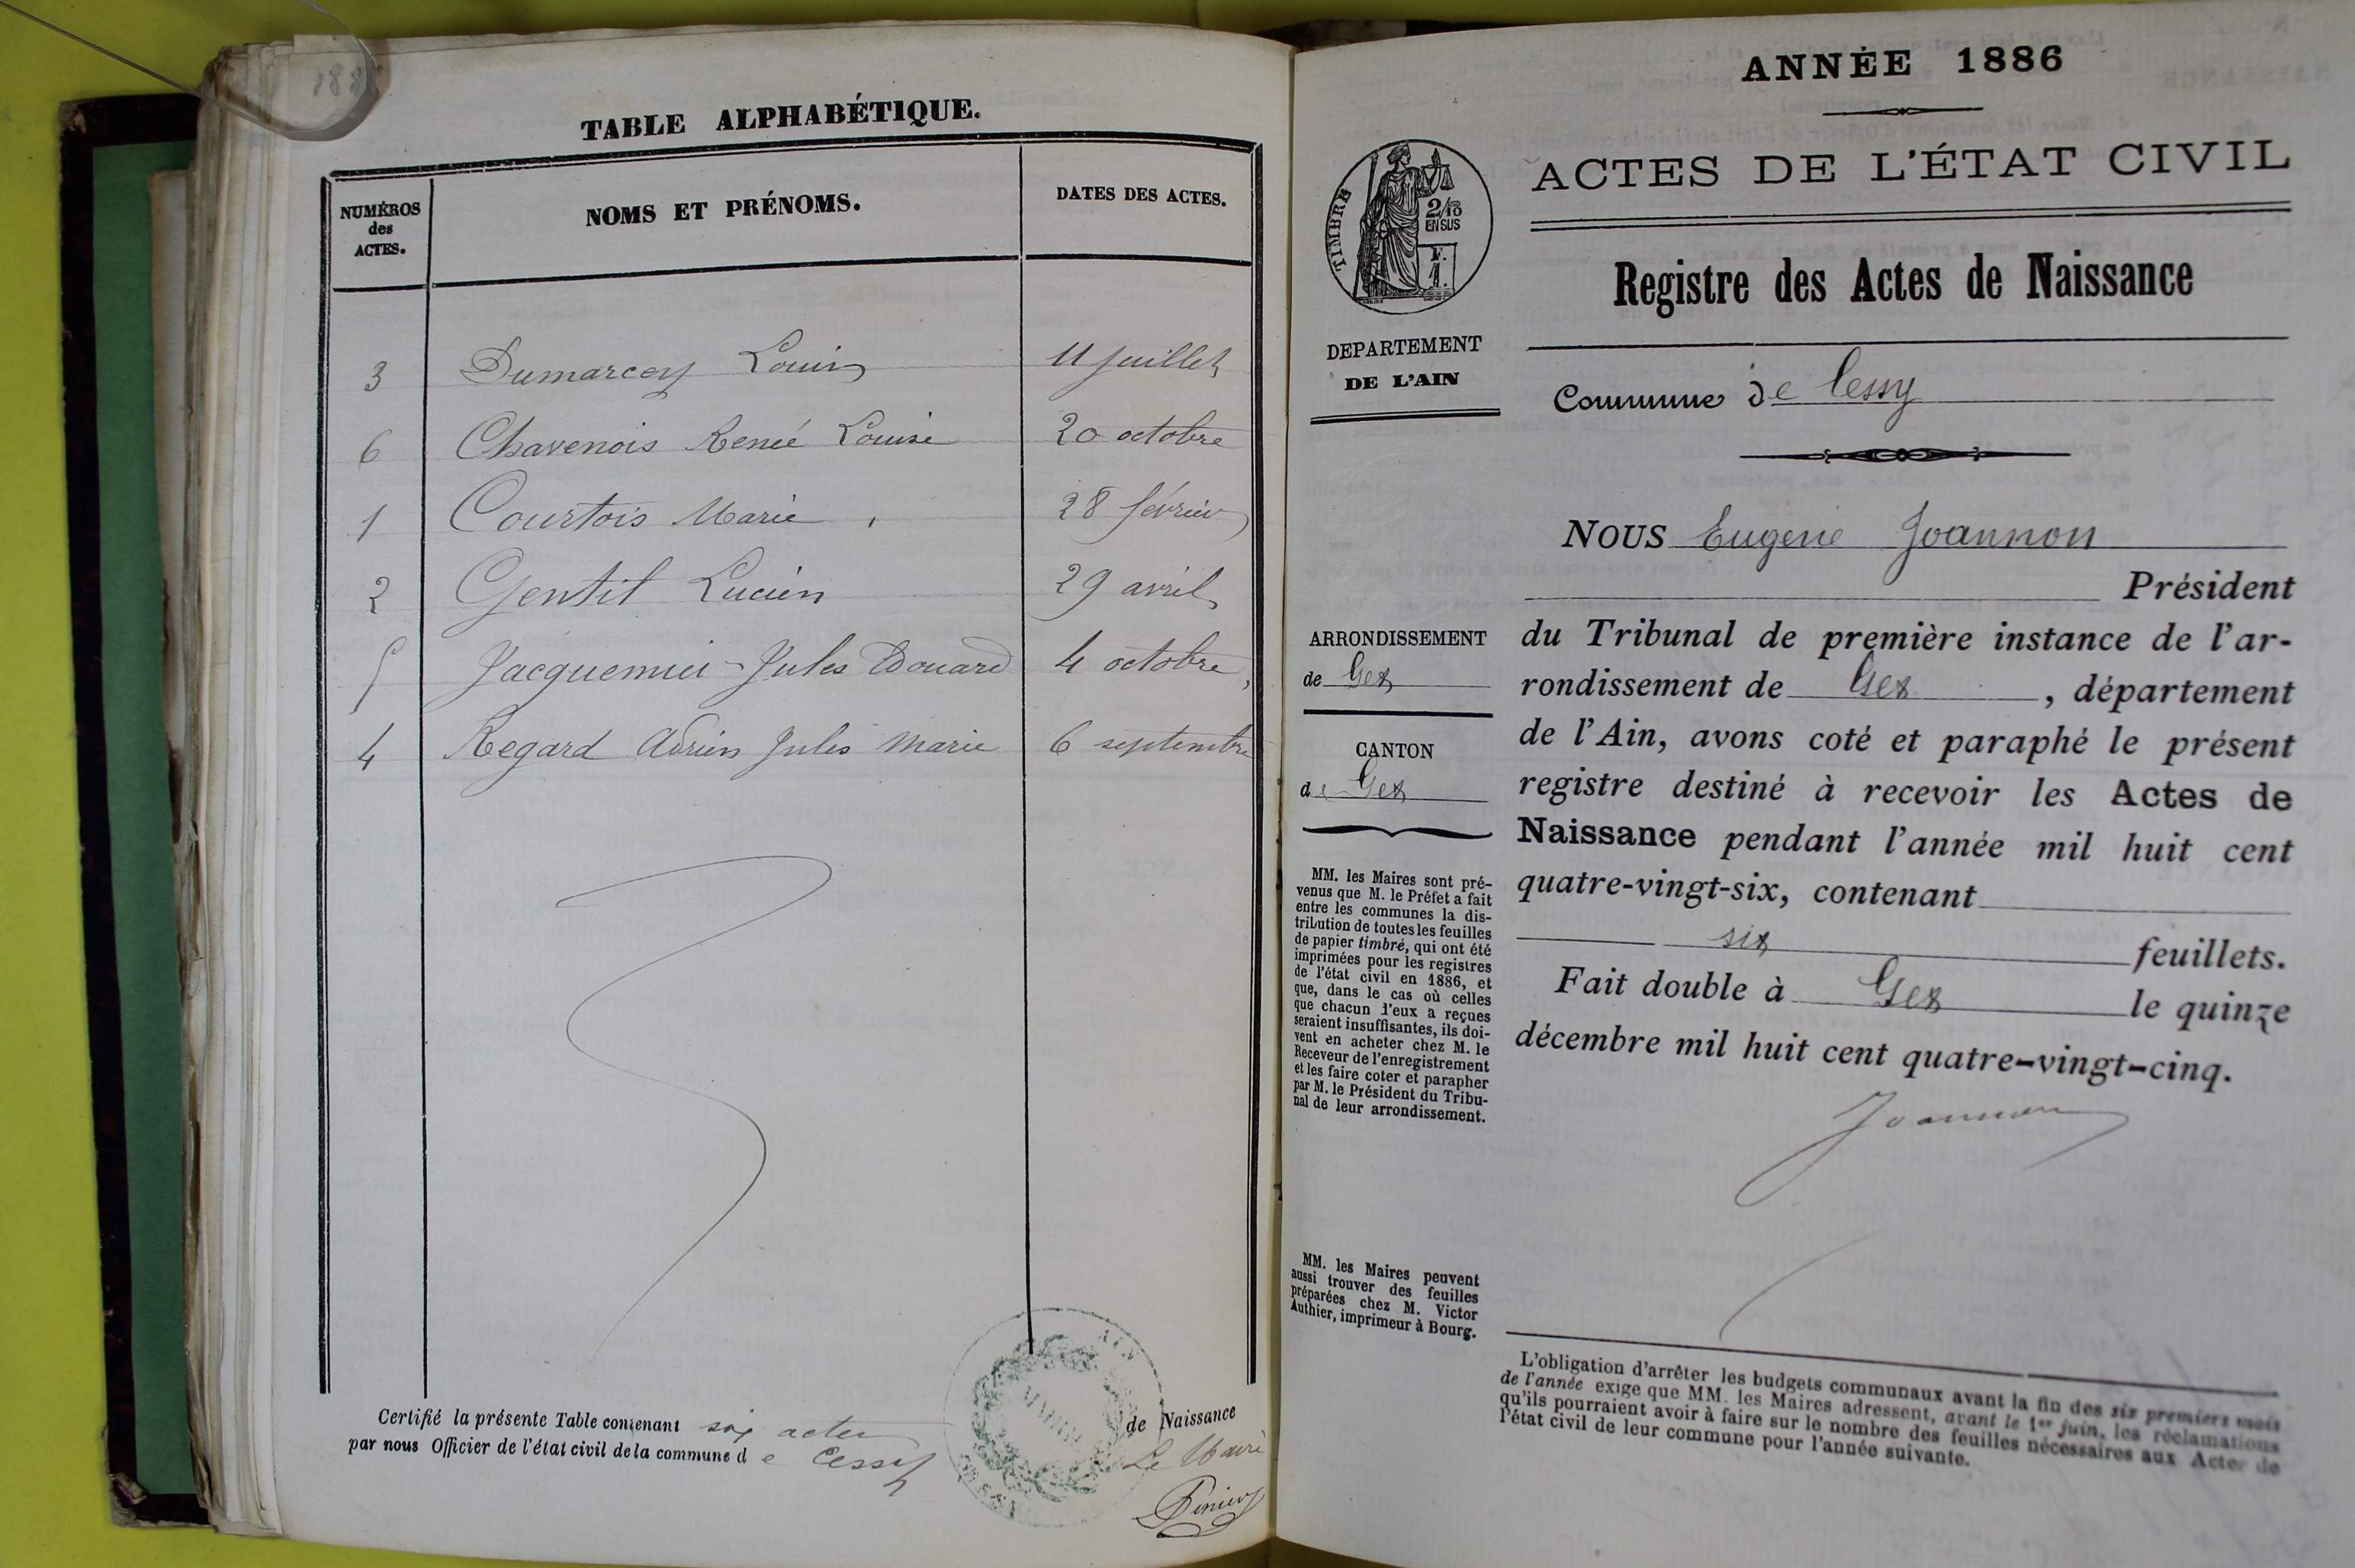 188
TABLE ALPHABÉTIQUE.
NUMÉROS
des
ACTES.
NOMS ET PRÉNOMS.
DATES DES ACTES.
3 Dumarcey Louis 11 juillet
6 Chavenois Reneé Louise 20 octobre
1 Courtois Marie 28 février
2 Gentil Lucien 29 avril
5 Jacquemier Jules Edouard 4 octobre
4 Regard Adrien Jules Marie 6 septembre
Certifié la présente Table contenant six actes de Naissance
par nous Officier de l'état civil de la commune de Cessy Le Maire
MAIRIE
AIN
ANNÉE 1886
TIMBRE
2/10
EN SUS
F.
1.
ACTES DE L'ÉTAT CIVIL
Registre des Actes de Naissance
DEPARTEMENT
DE L'AIN
Commune de Cessy
NOUS Eugène Joannon
Président
du Tribunal de première instance de l'ar-
rondissement de Gex, département
de l'Ain, avons coté et paraphé le présent
registre destiné à recevoir les Actes de
Naissance pendant l'année mil huit cent
quatre-vingt-six, contenant
six feuillets.
Fait double à Gex le quinze
décembre mil huit cent quatre-vingt-cinq.
Joannon
ARRONDISSEMENT
de Gex
CANTON
de Gex
MM. les Maires sont pré-
venus que M. le Préfet a fait
entre les communes la dis-
tribution de toutes les feuilles
de papier timbré, qui ont été
imprimées pour les registres
de l'état civil en 1886, et
que, dans le cas où celles
que chacun d'eux a reçues
seraient insuffisantes, ils doi-
vent en acheter chez M. le
Receveur de l'enregistrement
et les faire coter et parapher
par M. le Président du Tribu-
nal de leur arrondissement.
MM. les Maires peuvent
aussi trouver des feuilles
préparées chez M. Victor
Authier, imprimeur à Bourg.
L'obligation d'arrêter les budgets communaux avant la fin des six premiers mois
de l'année exige que MM. les Maires adressent, avant le 1er juin, les réclamations
qu'ils pourraient avoir à faire sur le nombre des feuilles nécessaires aux Actes de
l'état civil de leur commune pour l'année suivante.